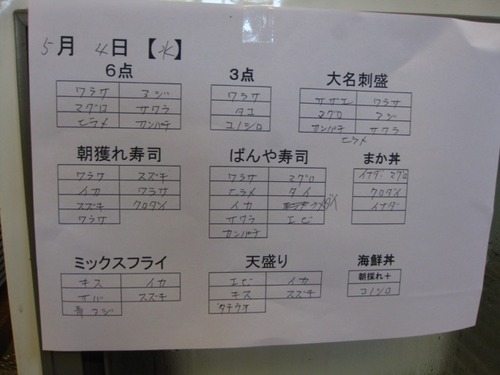 5月 4日【水】
6点 3点 大名刺盛
ワラサ アジ ワラサ サザエ ワラサ
マグロ サワラ タコ マグロ アジ
ヒラメ カンパチ コノシロ カンパチ サワラ
ヒラメ
朝獲れ寿司 ばんや寿司 まか丼
ワラサ スズキ ワラサ マグロ イナダ マグロ
イカ ワラサ ヒラメ タイ クロダイ
スズキ クロダイ イカ クロダイ イナダ
ワラサ サワラ エビ
カンパチ
ミックスフライ 天盛り 海鮮丼
キス イカ エビ イカ 朝採れ+
サバ スズキ キス スズキ コノシロ
青アジ タチウオ